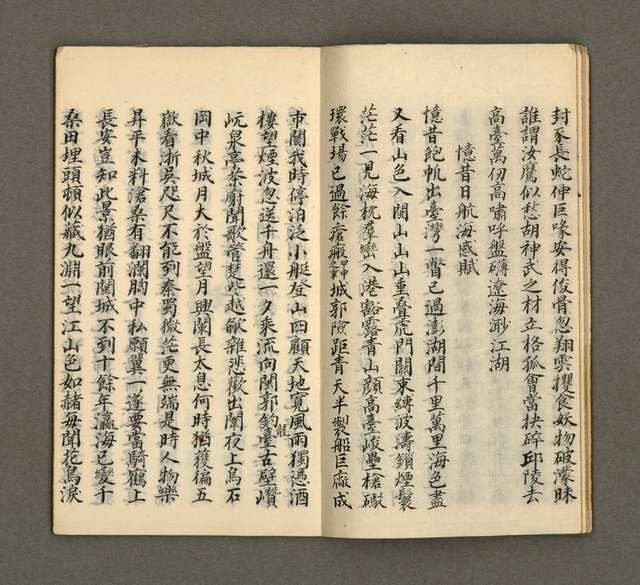 封豕長蛇伸巨喙安得俊骨忽翔雲攫食妖物破濛昧
誰謂汝鷹似愁胡神武之材立格孤會當抉碎邱陵去
高臺萬仞高嘯呼盤礴遼海渺江湖
憶昔日航海感賦
憶昔飽帆出臺灣一瞥已過澎湖間千里萬里海色盡
又看山色入閩山山山重疊虎門關束縛波濤鎖煙鬟
茫茫一見海枕羣巒入港谿露青山顏高臺峻壘槍礮
環戰場已過餘瘡瘢城郭險距青天半製船巨廠成
市闤我時停泊泛小艇登山四顧天地寬風雨獨憑酒
樓望煙波忽送千舟還一夕乘流向閩郭釣龍臺古壁巑
岏泉亭茶㕑鬧歌管楚些越歈雜悲歡出闈夜上烏石
岡中秋城月大於盤望月興闌長太息何時獲徧五
嶽看浙吳咫尺不能到秦蜀微茫更無端是時人物樂
昇平未料滄桑有翻瀾胸中私願翼一遂要當騎鶴上
長安豈知此景猶眼前閩城不到十餘年瀛海已變千
桑田埋頭頓似藏九淵一望江山色如赭每聞花鳥淚